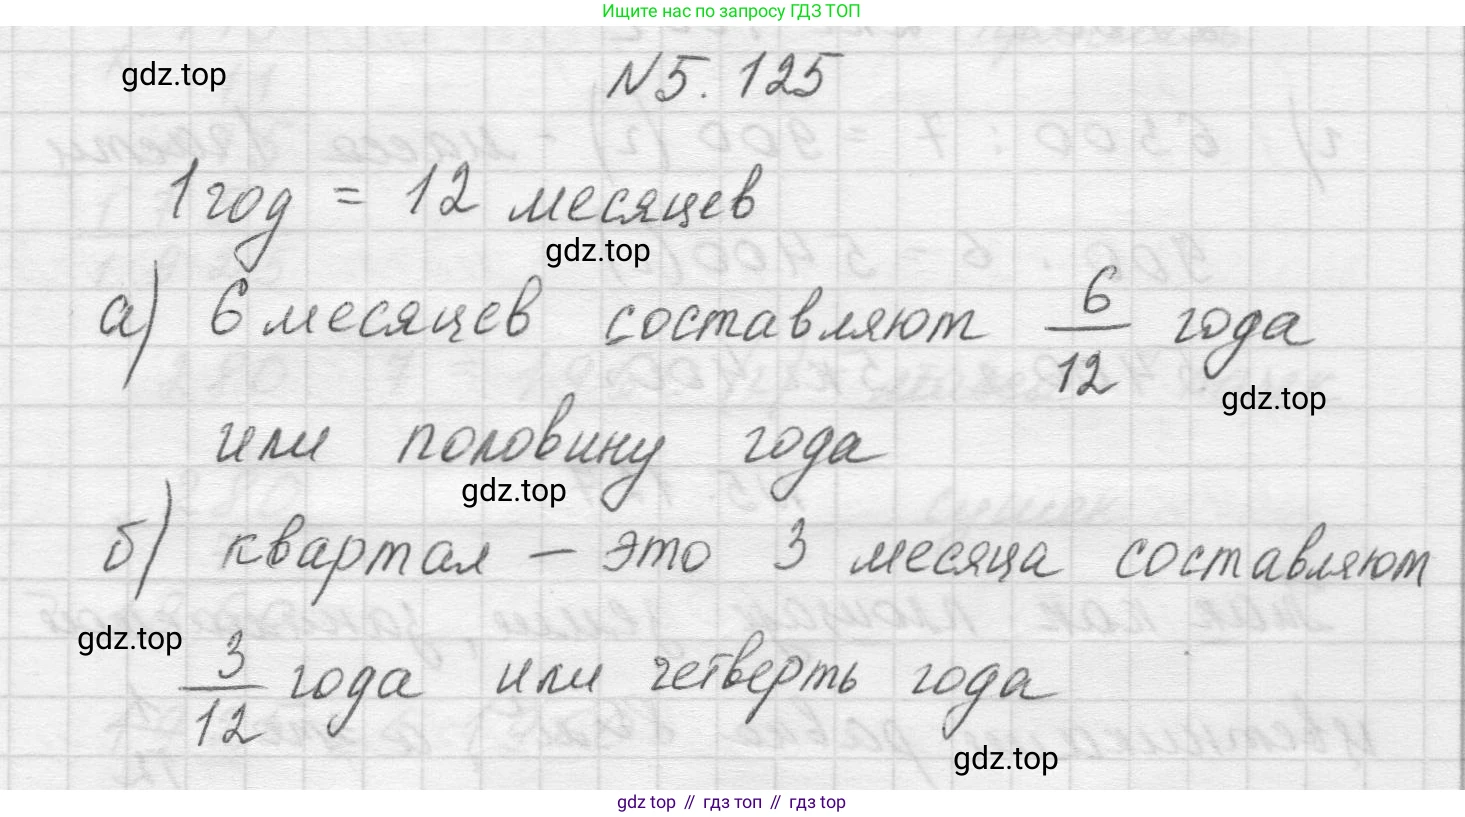 Ищите нас по запросу ГДЗ ТОП
gdz.top
N5.125
1 год = 12 месяцев
gdz.top
а) 6 месяцев составляют 6/12 года
gdz.top
или половину года
gdz.top
б) квартал – это 3 месяца составляют
gdz.top
3/12 года или четверть года
gdz.top
gdz top // гдз топ // gdz top